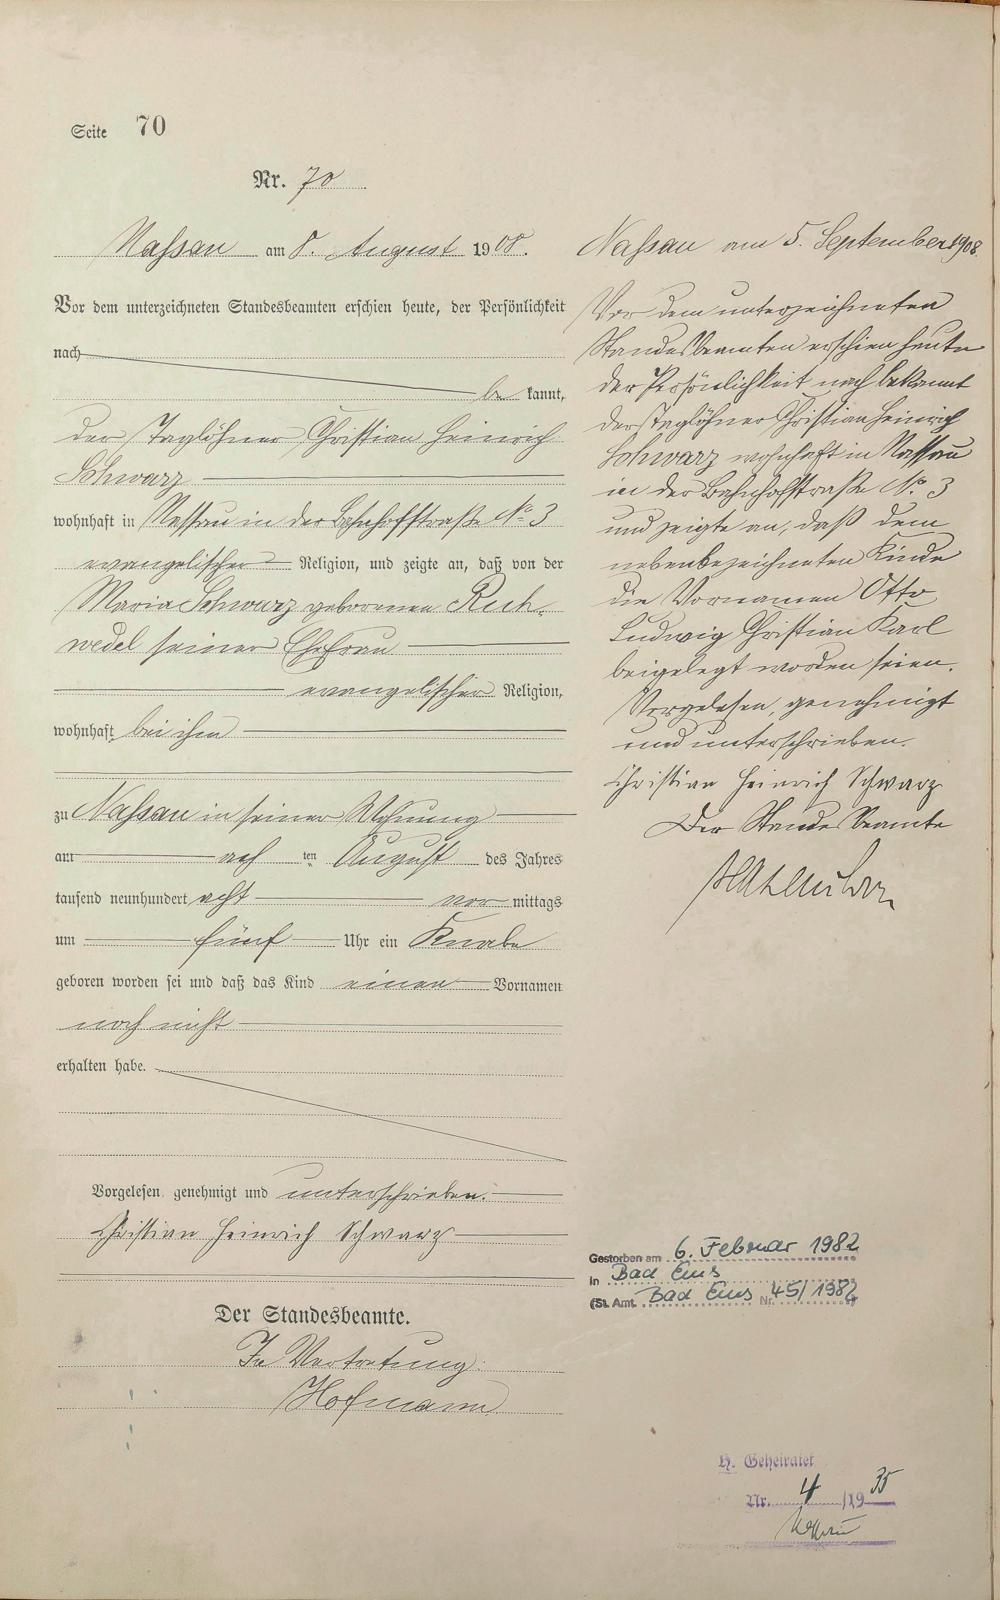 Seite 70
Nr. 70
Nassau am 8. August 1908.
Vor dem unterzeichneten Standesbeamten erschien heute, der Persönlichkeit
nach
be kannt,
der Taglöhner Christian Heinrich
Schwarz
wohnhaft in Nassau in der Bahnhofstraße No 3
evangelischer Religion, und zeigte an, daß von der
Maria Schwarz geborenen Rech-
wedel seiner Ehefrau
evangelischer Religion,
wohnhaft bei ihm
zu Nassau in seiner Wohnung
am ach ten August des Jahres
tausend neunhundert acht vor mittags
um fünf Uhr ein Knabe
geboren worden sei und daß das Kind einen Vornamen
noch nicht
erhalten habe.
Vorgelesen, genehmigt und unterschrieben.
Christian Heinrich Schwarz
Der Standesbeamte.
In Vertretung:
Hofmann
Nassau am 5. September 1908.
Vor dem unterzeichneten
Standesbeamten erschien heute
der Persönlichkeit nach bekannt
der Taglöhner Christian Heinrich
Schwarz wohnhaft in Nassau
in der Bahnhofstraße No. 3
und zeigte an, daß dem
nebenbezeichneten Kinde
die Vornamen Otto
Ludwig Christian Karl
beigelegt worden seien.
Vorgelesen, genehmigt
und unterschrieben.
Christian Heinrich Schwarz
Der Standesbeamte
Gestorben am 6. Februar 1982
in Bad Ems
(St. Amt. Bad Ems Nr. 45/1982)
H. Geheiratet
Nr. 4 /1935
Nassau